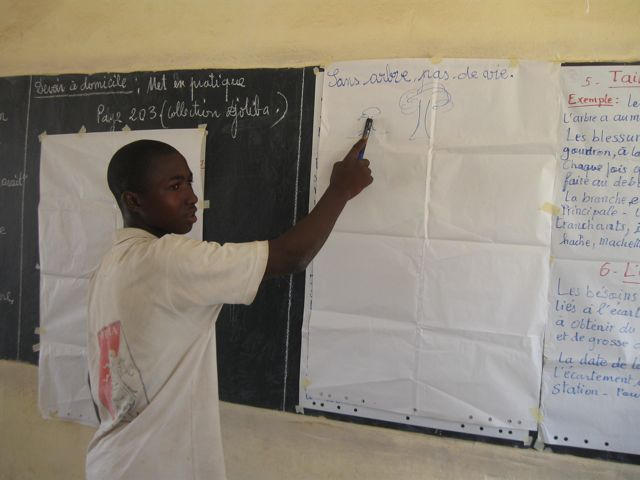 Devoir à domicile : Met en pratique
Page 203 (Collection Djoliba.)
Sans arbre, pas de vie.
5. Tai
Exemple: le
L'arbre a au m
Les blessur
goudron, à la
Chaque fois q
faite au deb
La branche e
Principale -
tranchants,
hache, machet
6_ L'
Les bésoins
liés à l'écart
à obtenir du
et de grosse
La date de la
l'écartement
Station - Pou